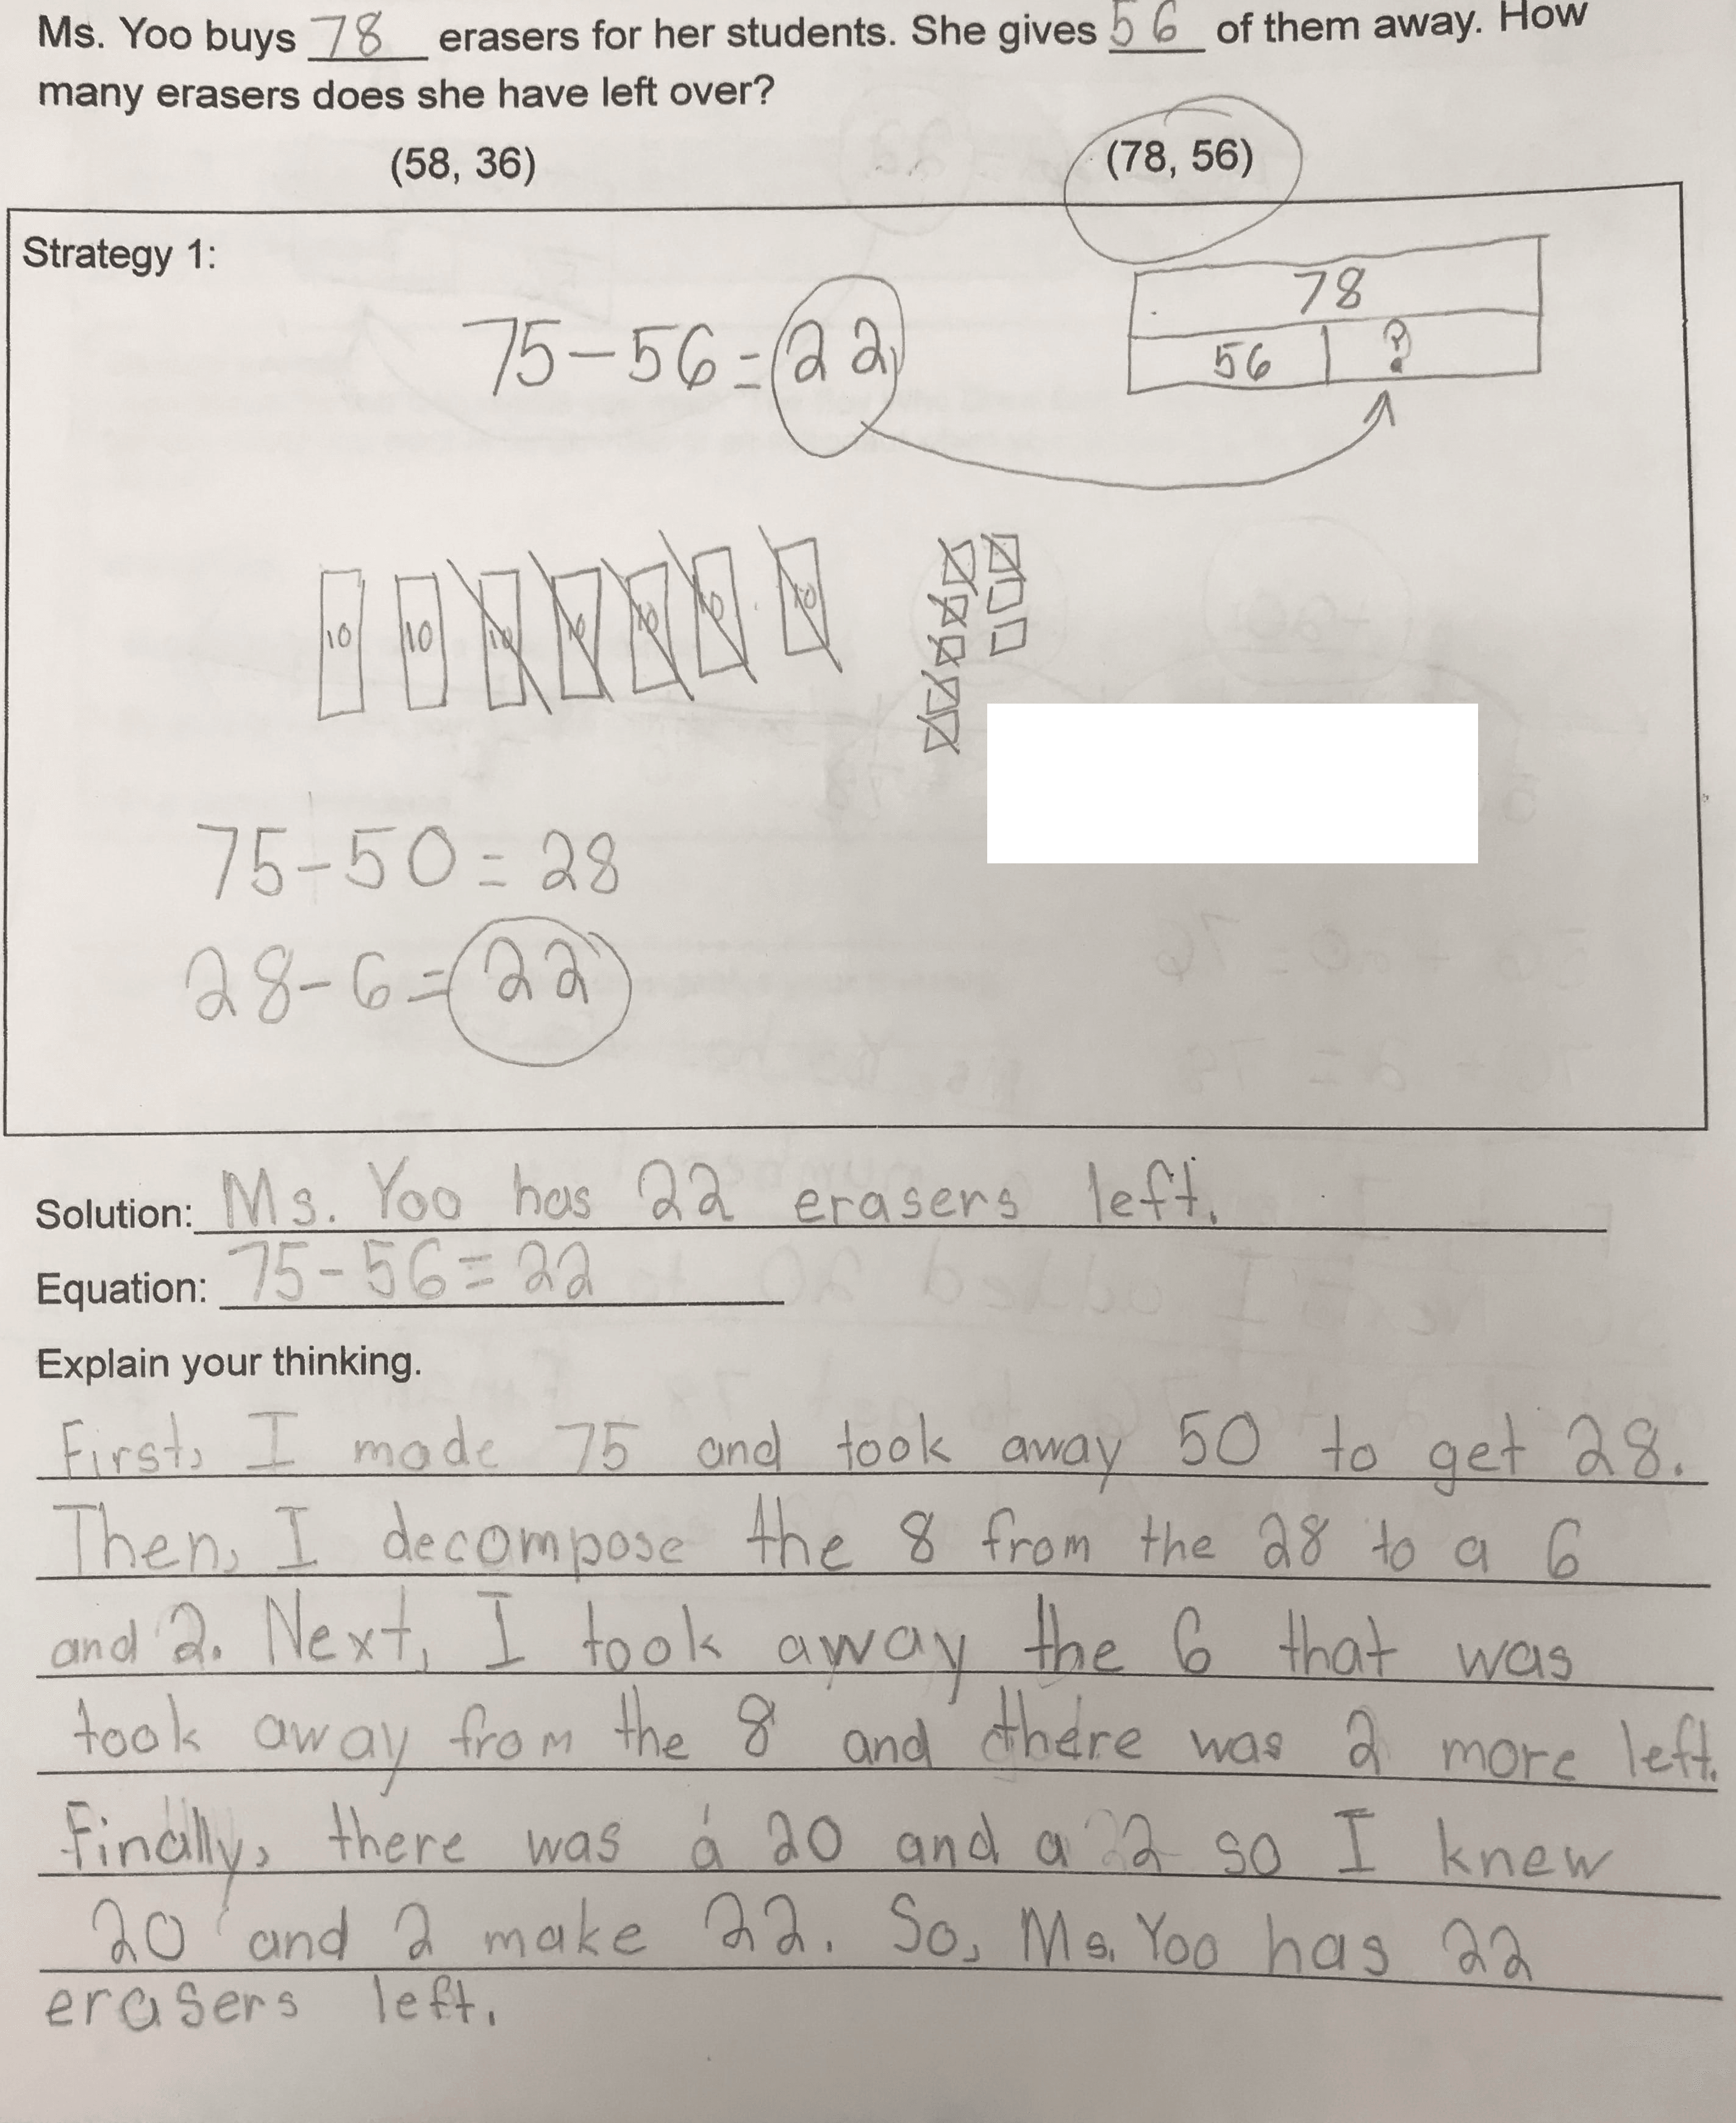 Ms. Yoo buys 78 erasers for her students. She gives 56 of them away. How
many erasers does she have left over?
(58, 36) (78, 56)
Strategy 1:
75-56=22
78
56 ?
10 10 10 10 10 10 10
75-50=28
28-6=22
Solution: Ms. Yoo has 22 erasers left.
Equation: 75-56=22
Explain your thinking.
First, I made 75 and took away 50 to get 28.
Then, I decompose the 8 from the 28 to a 6
and 2. Next, I took away the 6 that was
took away from the 8 and there was 2 more left.
Finally, there was a 20 and a 2 so I knew
20 and 2 make 22. So, Ms. Yoo has 22
erasers left.